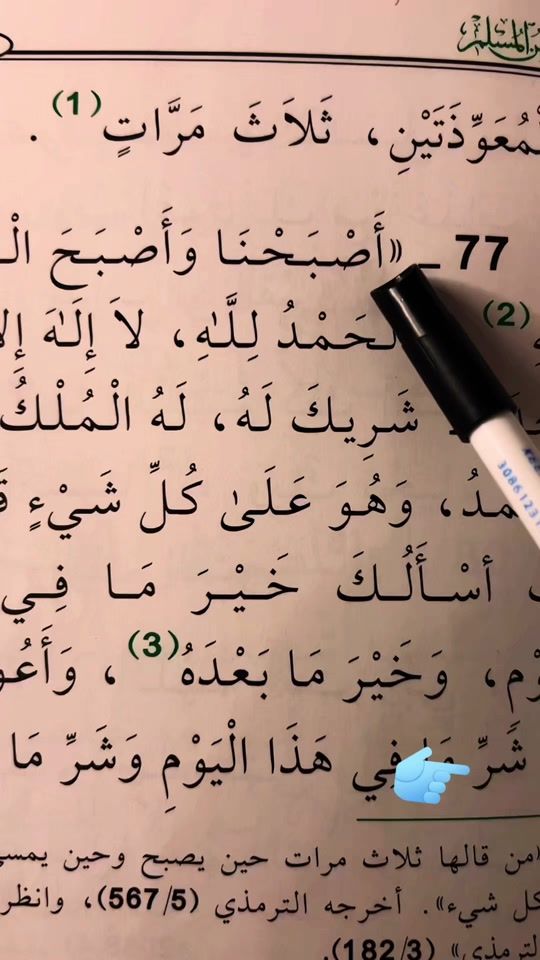 ن المسلم
لمعوذتين، ثَلاَثَ مَرَّاتٍ (1) .
77 ـ «أَصْبَحْنَا وَأَصْبَحَ الْـ
(2) لْحَمْدُ لِلَّهِ، لاَ إِلَهَ إِلا
شَرِيكَ لَهُ، لَهُ الْمُلْكُ
مدُ، وَهُوَ عَلَىٰ كُلِّ شَيْءٍ قَ
أسْأَلُكَ خَيْرَ مَا فِي
وْمِ، وَخَيْرَ مَا بَعْدَهُ (3) ، وَأَعُو
شَرِّ مَا فِي هَذَا الْيَوْمِ وَشَرِّ مَا
(من قالها ثلاث مرات حين يصبح وحين يمسي
كل شيء». أخرجه الترمذي (567/5)، وانظر
لترمذي» (182/3).
3086123